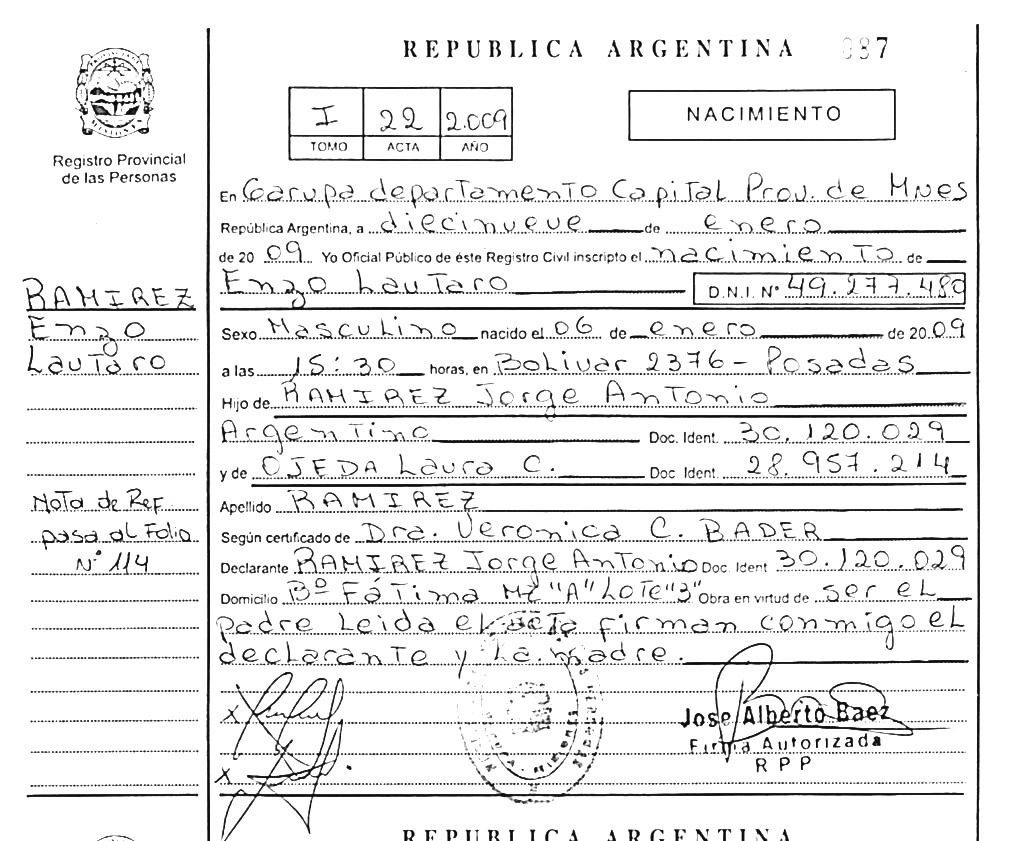 REPUBLICA ARGENTINA 087
I 22 2.009
TOMO ACTA AÑO
NACIMIENTO
Registro Provincial
de las Personas
En Garupa departamento Capital Prov. de Mnes
República Argentina, a diecinueve de enero
de 20 09 Yo Oficial Público de éste Registro Civil inscripto el nacimiento de
Enzo Lautaro D.N.I. N° 49.277.480
RAMIREZ
Enzo
Lautaro
Sexo Masculino nacido el 06 de enero de 20 09
a las 15:30 horas, en Bolivar 2376 - Posadas
Hijo de RAMIREZ Jorge Antonio
Argentino Doc. Ident. 30.120.029
y de OJEDA Laura C. Doc. Ident. 28.957.214
Apellido RAMIREZ
Nota de Ref.
pasa al Folio
N° 114
Según certificado de Dra. Veronica C. BADER
Declarante RAMIREZ Jorge Antonio Doc. Ident 30.120.029
Domicilio Bº Fátima Mz "A" Lote "3" Obra en virtud de ser el
padre Leida el acta firman conmigo el
declarante y La madre.
X
X
Jose Alberto Baez
Firma Autorizada
R P P
REPUBLICA ARGENTINA